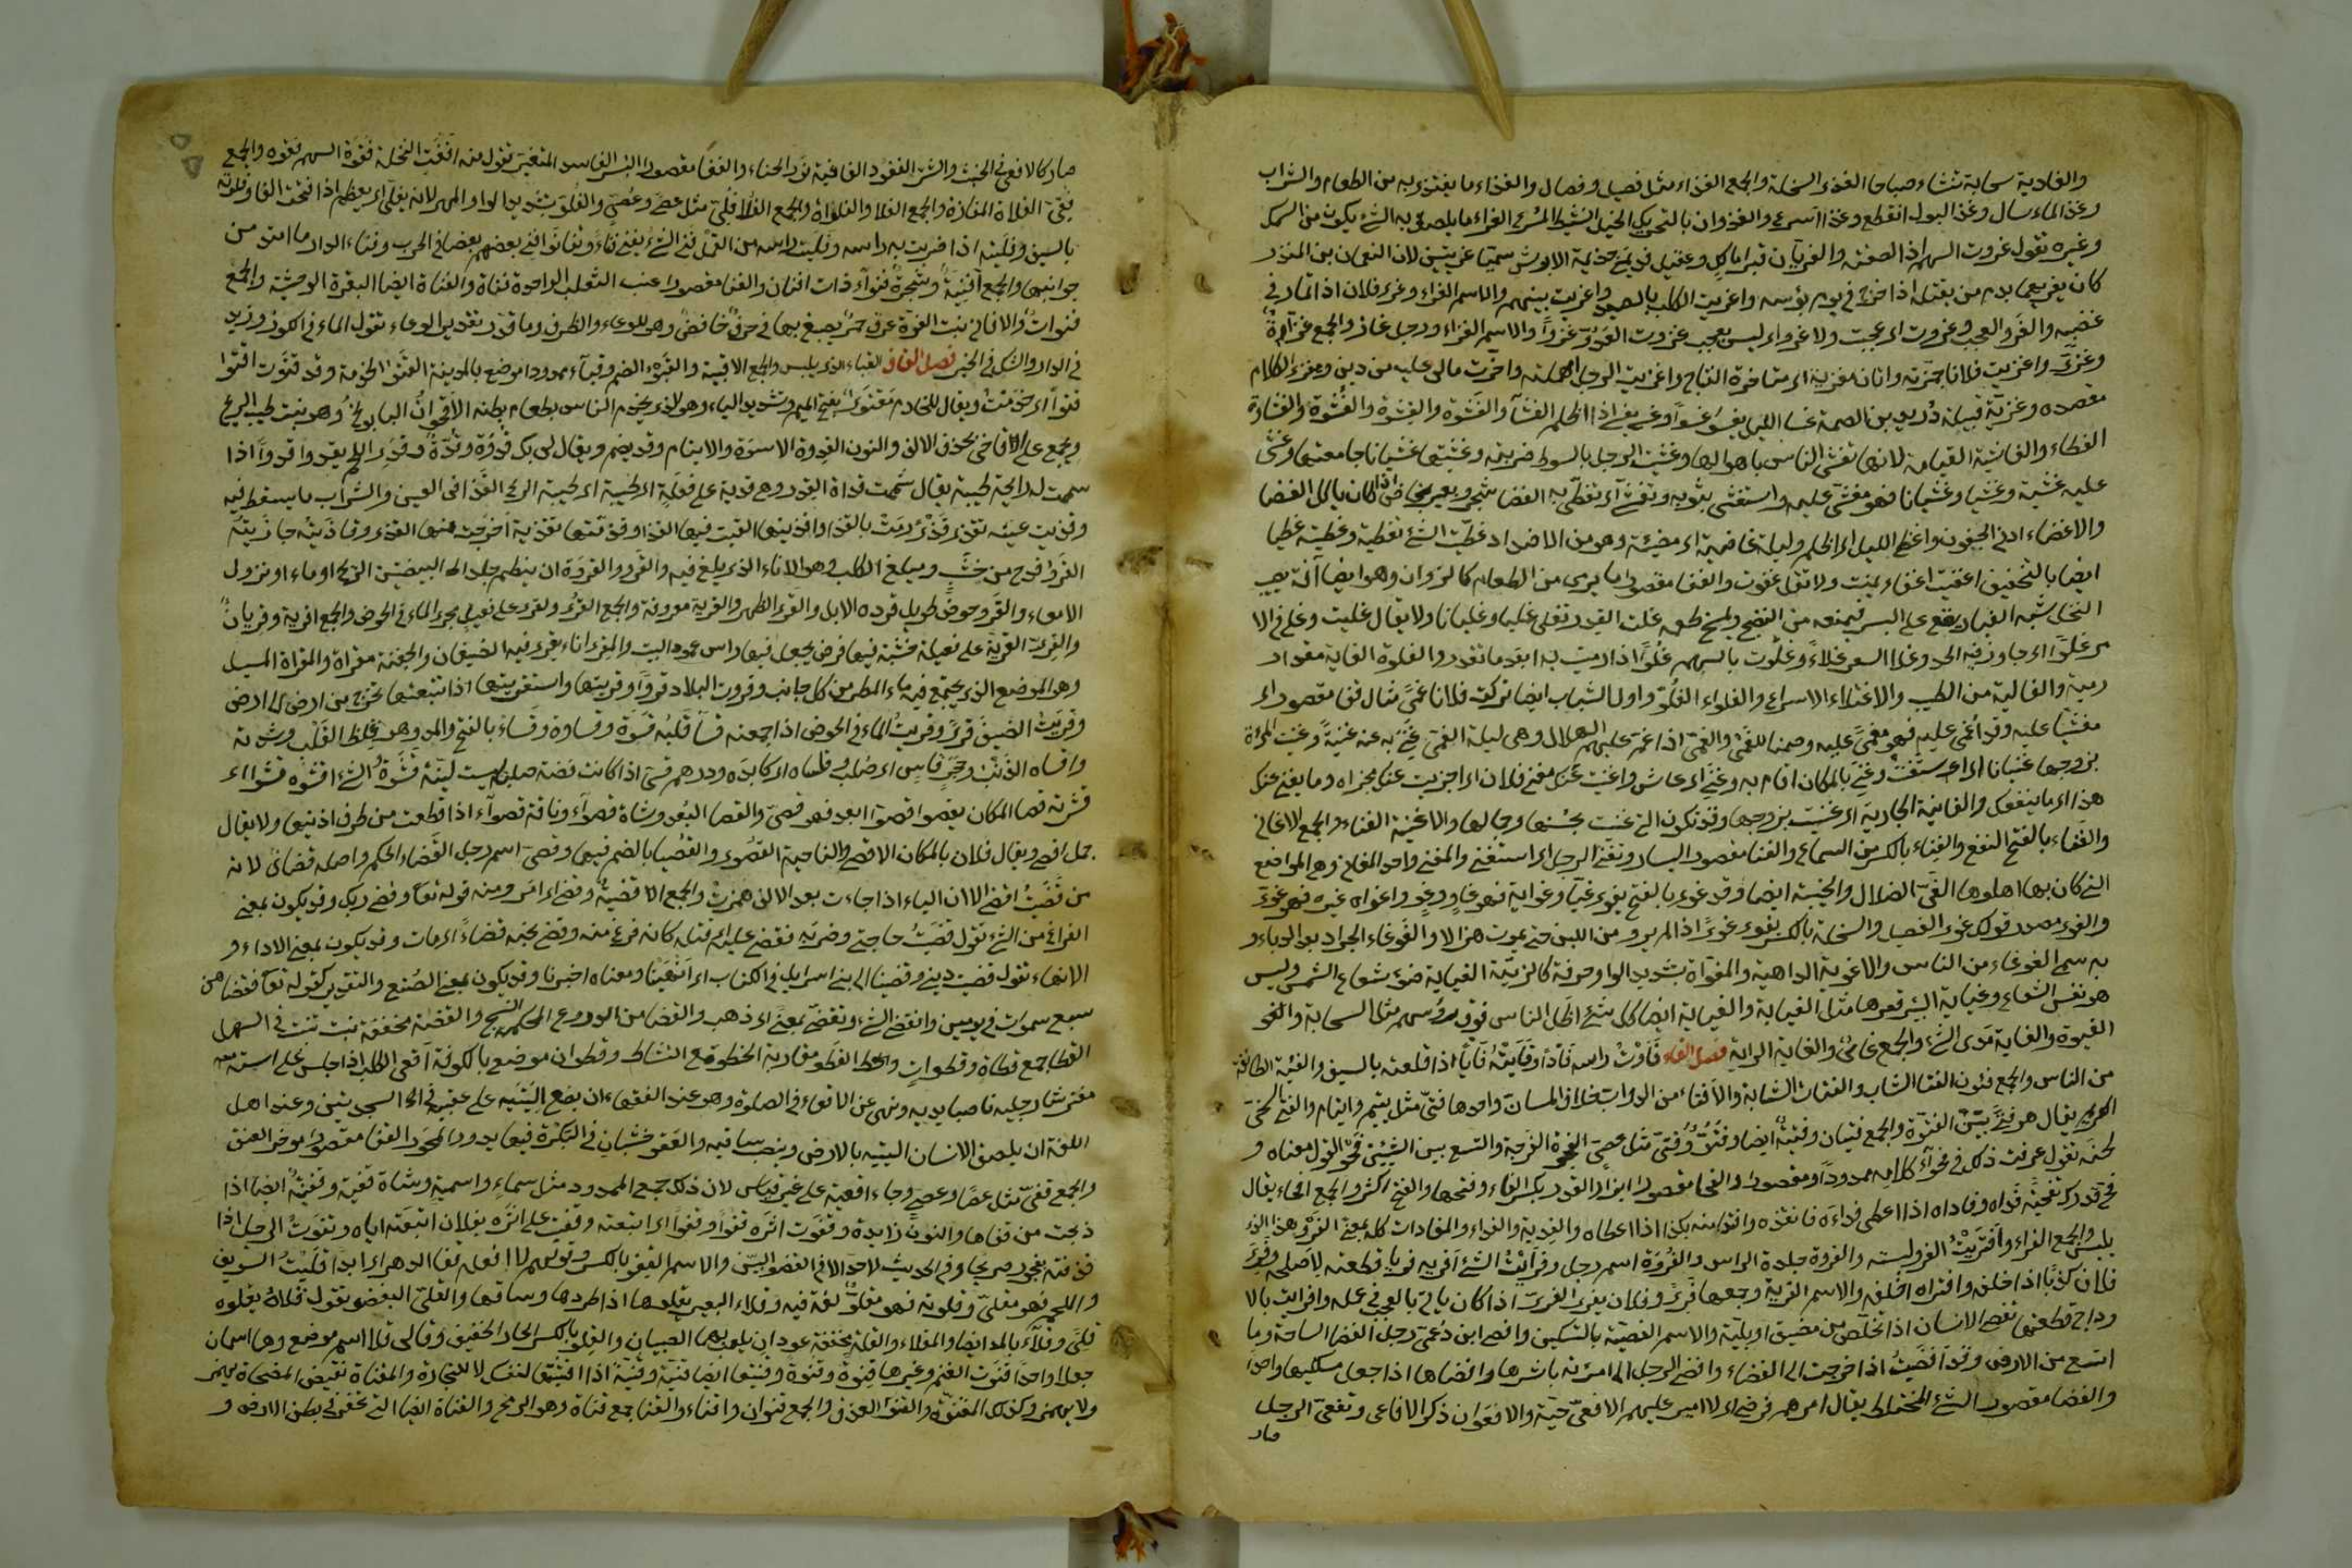 والغادية سحابة تنشاء صباحا الغذى السخلة والجمع الغذاء مثل فصيل وفصال والغذاء ما يغتذى به من الطعام والشراب
وغذا الماء سال وغذا البول انقطع وغذا اسرع والغذوان بالتحريك الخيل النشيط المسرع الغراء ما يلصق به الشئ يكون من السمك
وغيره تقول غروت السهم اذا الصقته والغريان قبرا مالك وعقيل نديمى جذيمة الابرش سميا غريين لان النعمان بن المنذر
كان يغريهما بدم من يقتله اذا خرج فى يوم بؤسه واغريت الكلب بالصيد واغريت بينهم والاسم الغراء وغرى فلان اذا تمادى فى
غضبه والغرو العجب وغروت اى عجبت ولا غرو اى ليس بعجب غزوت العدو غزوا والاسم الغزاء ورجل غاز والجمع غزاة
وغزى واغزيت فلانا جهزته واتان مغزية اى متاخرة النتاج واغزيت الرجل امهلته واخرت مالى عليه من دين ومغزى الكلام
مقصده وغزية قبيلة دريد بن الصمة غسا الليل يغسو غسوا وغسى يغسى اذا اظلم الغشاء والغشوة والغشوة والغشوة والغشاوة
الغطاء والغاشية القيامة لانها تغشى الناس باهوالها وغشيت الرجل بالسوط ضربته وغشيتها غشيانا جامعتها وغشى
عليه غشية وغشيا وغشيانا فهو مغشى عليه واستغشى بثوبه وتغشى اى تغطى به الغضا شجر وبعير غاض اذا كان ياكل الغضا
والاغضاء ادنى الجفون واغضى الليل اى اظلم وليلة غاضية اى مضيئة وهو من الاضداد غطيت الشئ تغطية وغطيته غطيا
ايضا بالتخفيف اغفيت اغفاء نمت ولا تقل غفوت والغفا مقصورا ما يرمى من الطعام كالزوان وهو ايضا آفة تصيب
النخل شبه الغبار يقع على البسر فيمنعه من النضج ويمسخ طعمه غلت القدر تغلى غليا وغليانا ولا يقال غليت وغلى فى الا
مر غلوا اى جاوز فيه الحد وغلا السعر غلاء وغلوت بالسهم غلوا اذا رميت به ابعد ما تقدر والغلوة الغاية مقدار
رمية والغالية من الطيب والاغتلاء الاسراع والغلواء الغلو واول الشباب ايضا تركت فلانا غمى مثال قفا مقصورا اى
مغشيا عليه وقد اغمى عليه فهو مغمى عليه وصمنا للغمى والغمى اذا غم عليهم الهلال وهى ليلة الغمى غنى به عنه غنية وغنيت المراة
بزوجها غنيانا اى استغنت وغنى بالمكان اقام به وغنى اى عاش واغنيت عنك مغنى فلان اى اجزيت عنك مجزاه وما يغنى عنك
هذا اى ما ينفعك والغانية الجارية اى غنيت بزوجها وقد تكون التى غنيت بحسنها وجمالها والاغنية الغناء والجمع الاغانى
والغناء بالفتح النفع والغناء بالكسر من السماع والغنا مقصورا اليسار وتغنى الرجل اى استغنى والمغنى واحد المغانى وهى المواضع
التى كان بها اهلوها الغى الضلال والخيبة ايضا وقد غوى بالفتح يغوى غيا وغواية فهو غاو وغو واغواه غيره فهو غوى
والغوى مصدر قولك غوى الفصيل والسخلة بالكسر يغوى غوى اذا لم يرو من اللبن حتى يموت هزالا والغوغاء الجراد بعد الدباء و
به سمى الغوغاء من الناس والاغوية الداهية والمغواة بتشديد الواو حفرة كالزبية الغياية ضوء شعاع الشمس وليس
هو نفس الشعاء وغياية البئر قعرها مثل الغيابة والغياية ايضا كل شئ اظل الناس فوق رؤسهم مثل السحابة والغبر
الغبرة والغاية مدى الشئ والجمع غاى والغاية الراية فصل الفاء فاوت راسه فاوا وفايته فايا اذا فلقته بالسيف والفئة الطائفة
من الناس والجمع فئون الفتا الشاب والفتاة الشابة والافتاء من الدواب خلاف المسان واحدها فتى مثل يتيم وايتام والفتى السخى
الكريم يقال هو فتى بين الفتوة والجمع فتيان وفتية ايضا وفتو وفتى مثل عصى الفجوة الفرجة والمتسع بين الشيئين فحو القول معناه و
لحنه تقول عرفت ذلك فى فحواء كلامه ممدودا ومقصورا والفحا مقصورا ابزار القدر بكسر الفاء وفتحها والفتح اكثر والجمع افحاء يقال
فح قدرك تفحية فداه وفاداه اذا اعطى فداءه فانقذه وافتدى منه بكذا اذا اعطاه والفدية والفداء والمفادات كله بمعنى الفرو هذا الذى
يلبس والجمع الفراء وافتريت الفرو لبسته والفروة جلدة الراس والفروة اسم رجل وفريت الشئ افريه فريا قطعته لاصلحه وفرى
فلان كذبا اذا خلقه وافتراه اختلقه والاسم الفرية وجمعها فرى وفلان يفرى الفرى اذا كان ياتى بالعجب فى عمله وافريت بالا
وداج قطعتها تفصى الانسان اذا تخلص من مضيق او بلية والاسم الفصية بالتسكين وافصى ابن دعمى رجل الفضا الساحة وما
اتسع من الارض وقد افضيت اذا خرجت الى الفضاء وافضى الرجل الى امرئته باشرها وافضاها اذا جعل مسلكيها واحدا
والفضا مقصورا الشئ المختلط يقال امرهم فوضى اى لا امير عليهم الافعى حية والافعوان ذكر الافاعى وتفعى الرجل
صار
صار كالافعى فى الخبث والشر الفغو والفاغية نور الحناء والفغا مقصورا البسر الفاسد المتغير تقول منه افغت النخلة فقوة السهم فوقه والجمع
فقى الفلاة المفازة والجمع الفلا والفلوات والجمع الفلا فلى مثل عصى وعصى والفلو بتشديد الواو المهر لانه يفتلى اى يعظم اذا فتحت الفا وفلوته
بالسيف وفليته اذا ضربت به راسه وفليت راسه من القمل فنى الشئ يفنى فناء وتفانوا افنى بعضهم بعضا فى الحرب وفناء الدار ما امتد من
جوانبها والجمع افنية وشجرة فنواء ذات افنان والفنا مقصورا عنب الثعلب الواحدة فناة والفناة ايضا البقرة الوحشية والجمع
فنوات والافانى نبت الفوة عروق حمر يصبغ بها فى حرف خافض وهو للوعاء والظرف وما قدر تقدير الوعاء تقول الماء فى الكوز وزيد
فى الدار والشك فى الخبر فصل القاف القباء الذى يلبس والجمع الاقبية والقبوة الضم وقباء ممدودا موضع بالمدينة القتو الخدمة وقد قتوت اقتوا
قتوا اى خدمت ويقال للخادم مقتوى بفتح الميم وتشديد الياء وهو الذى يخدم الناس بطعام بطنه الاقحوان البابونج وهو نبت طيب الريح
ويجمع على الاقاحى بحذف الالف والنون القدوة الاسوة والايتمام وقد يضم ويقال لى بك قدوة وقدة وقدى اللحم يقدوا قدوا اذا
سممت له رايحة طيبة يقال شممت قداة القدر وهى قدية على فعلة اى طيبة اى طيبة الريح القذا فى العين والشراب ما يسقط فيه
وقذيت عينه تقذى قذى رمت بالقذا واقذيتها القيت فيها القذا وقذيتها تقذية اخرجت منها القذى وقاذيته جازيته
القرو قدح من خشب وميلغ الكلب وهو الاناء الذى يلغ فيه والقرو والقروة ان ينظم جلد البيضتين الريح او ماء او نزول
الامعاء والقرو حوض طويل ترده الابل والقرى الظهر والقرية معروفة والجمع القرى والقرى على فعيل مجرى الماء فى الحوض والجمع اقرية وقريان
والقرى القرية على فعيلة خشبة فيها فرض يجعل فيها راس عمود البيت والمقرى اناء يقرى فيه الضيفان والجفنة مقراة والمقراة المسيل
وهو الموضع الذى يجتمع فيه ماء المطر من كل جانب وقروت البلاد قروا وقريتها واستقريتها اذا تتبعتها تخرج من ارض الى ارض
وقريت الضيف قرى وقريت الماء فى الحوض اذا جمعته قسا قلبه قسوة وقساوة وقساء بالفتح والمد وهو غلظ القلب وشدته
واقساه الذنب وحجر قاس اى صلب وقاساه اى كابده ودرهم قسى اذا كانت فضة صلبة ليست لينة قشوت الشئ اقشوه قشوا اى
قشرته قصا المكان يقصوا قصوا ابعد فهو قصى والقصا البعد وشاة قصواء وناقة قصواء اذا قطعت من طرف اذنيها ولا يقال
جمل اقصى ويقال فلان بالمكان الاقصى والناحية القصوى والقصيا بالضم فيها وقصى اسم رجل القضاء الحكم واصله قضاى لانه
من قضيت اقضى الا ان الياء اذا جاءت بعد الالف همزت والجمع الاقضية وقضى اى امر ومنه قوله تعا وقضى ربك وقد يكون بمعنى
الفراغ من الشئ تقول قضيت حاجتى وضربه فقضى عليه اى قتله كانه فرغ منه وقضى نحبه قضاء اى مات وقد يكون بمعنى الاداء و
الانهاء تقول قضيت دينى وقضينا الى بنى اسرايل فى الكتاب اى انهينا ومعناه اخبرنا وقد يكون بمعنى الصنع والتقدير كقوله تعا فقضاهن
سبع سموات فى يومين وانقضى الشئ وتقضى بمعنى اى ذهب والقضا من الدروع المحكمة النسج والقضة مخففة نبت تنبت فى السهل
القطا جمع قطاة وقطوات والقطو مقاربة الخطو مع النشاط وقطوان موضع بالكوفة اقعى الكلب اذا جلس على استه
مفترشا رجليه ناصبا يديه ونهى عن الاقعاء فى الصلوة وهو عند الفقهاء ان يضع اليتيه على عقبيه فى السجدتين وعند اهل
اللغة ان يلصق الانسان اليتيه بالارض وينصب ساقيه والقعو خشبتان فى البكرة فيهما يدور المحور القفا مقصورا موخر العنق
والجمع قفى مثل عصا وعصى وجاء اقفية على غير قياس لان ذلك جمع الممدود مثل سماء واسمية وشاة قفية وقفينة ايضا اذا
ذبحت من قفاها والنون زايدة وقفوت اثره قفوا وقفوا اى اتبعته وقفيت على اثره بفلان اتبعته اياه وقفوت الرجل اذا
قذفته بفجور صريحا وفى الحديث لاحد الا فى القفو البين والاسم القفو بالكسر وقولهم لا افعله قفا الدهر اى ابدا قليت السويق
واللحم فهو مقلى وقلوته فهو مقلو لغة فيه وقلاء البعير يقلوها اذا طردها وساقها والقلى البغض تقول قلاه يقلوه
قلى وقلاء بالمد ايضا والمقلاء والقلة مخففة عودان يلعب بهما الصبيان والقلو بالكسر الحمار الخفيف وقالى قلا اسم موضع وهما اسمان
جعلا واحدا قنوت الغنم وغيرها قنوة وقنوة وقنيتها ايضا قنية وقنية اذا اقتنيتها لنفسك لا للتجارة والمقناة نقيض المضحاة يهمز
ولا يهمز وكذلك المقنوة والقنو العذق والجمع قنوان واقناء والقنا جمع قناة وهو الرمح والقناة ايضا التى تحفر فى بطن الارض و